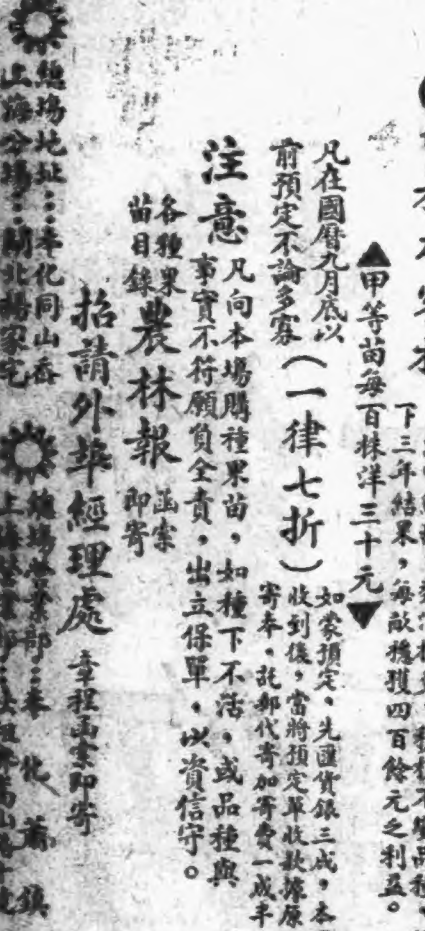 下三年結果，每畝穩獲四百餘元之利益。
▲甲等苗每百株洋三十元▼
凡在國曆九月底以
前預定不論多寡
（一律七折）
如蒙預定，先匯貨銀三成，本
收到後，當將預定單收款據原
寄奉，託郵代寄加寄費一成半
注意
凡向本場購種果苗，如種下不活，或品種與
事實不符願負全責，出立保單，以資信守。
各種果
苗目錄
農林報
函索
即寄
招請外埠經理處
章程函索即寄
總場地址：奉化同山岙
上海分場：閘北楊家宅
總場營業部：奉化蕭鎮